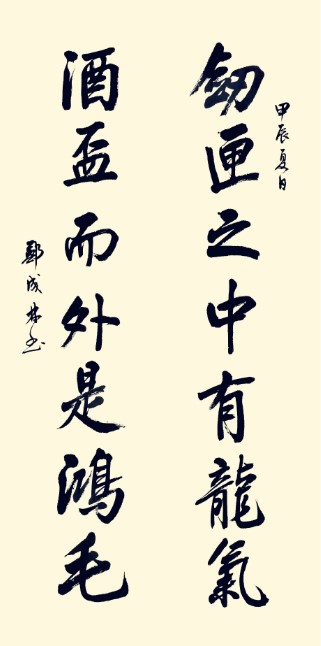 甲辰夏日
劒匣之中有龍氣
酒盃而外是鴻毛
鄭成林书